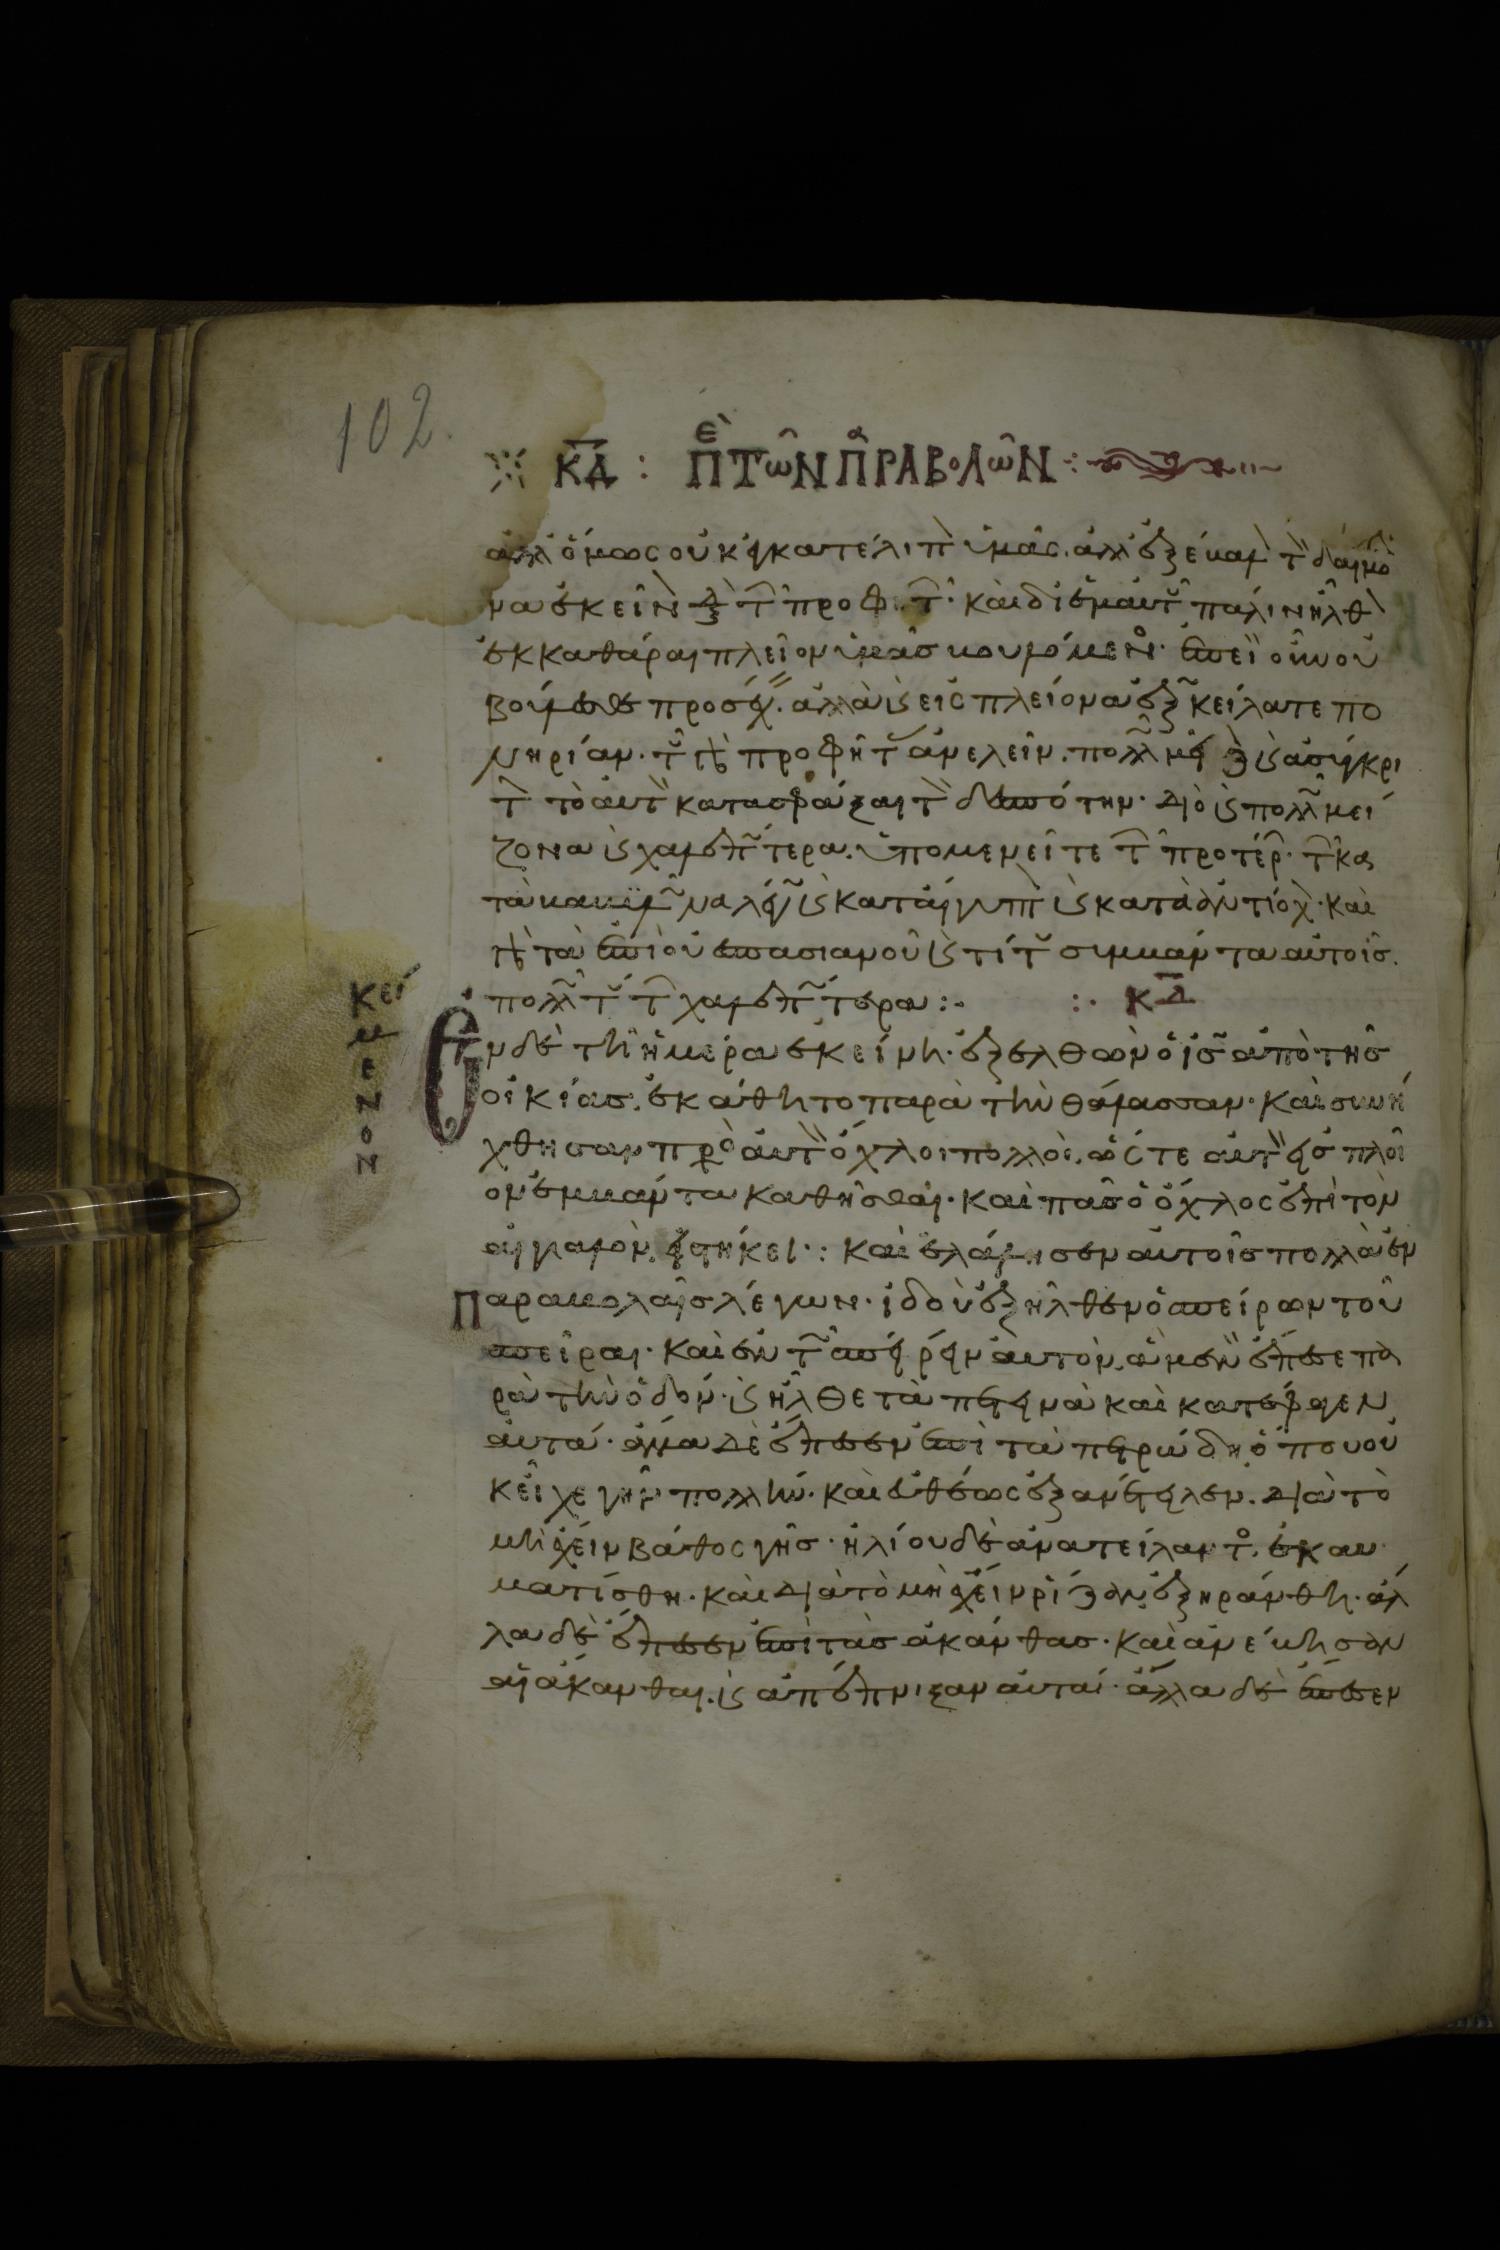 102
κδ : πε τῶν πραβολῶν :
ἀλλ ὅμως οὐκ ἐγκατέλιπ ὑμᾶς. ἀλλ ἐξέβαλ τ δαίμο
να ἐκεῖν τ προφ τ. καὶ δι ἐμαυτ πάλιν ἦλθ
ἐκκαθάραι πλεῖον ὑμᾶς βουλόμεν. ἐπεὶ οὖν οὐ
βούλεσθε προσέχ. ἀλλὰ κ εἰς πλείονα ἐξ κείλατε πο
νηρίαν. τ προφήτ ἀνελεῖν. πολλ κ ἀσύγκρι
τ τὸ αὐτ κατασφάξαι τ δεσπότην. διὸ κ πολλ μεί
ζονα κ χαλεπ τερα. ὑπομενεῖτε τ προτέρ. τ κα
τὰ βαβυλ να λέγ κ κατ αἴγυπτ κ κατὰ ἀντίοχ. καὶ
τὰ ἐπὶ οὐεσπασιανοῦ κ τίτ συμβάντα αὐτοῖς.
πολλ τ τ χαλεπ τερα :. :. κδ
κεί
μ
ε
ν
ο
ν
Ἐν δὲ τῇ ἡμέρα ἐκείνῃ. ἐξελθὼν ὁ ις ἀπὸ τῆς
οἰκίας. ἐκάθητο παρὰ τὴν θάλασσαν. καὶ συνή
χθησαν πρὸ αὐτ ὄχλοι πολλοὶ. ὥστε αὐτ εἰς πλοῖ
ον ἐμβάντα καθῆσθαι. καὶ πᾶς ὁ ὄχλος ἐπὶ τὸν
αἰγιαλὸν εἱστήκει. : καὶ ἐλάλησεν αὐτοῖς πολλὰ ἐν
Παραβολαῖς λέγων. ἰδοὺ ἐξῆλθεν ὁ σπείρων τοῦ
σπεῖραι. καὶ ἐν τ σπείρειν αὐτὸν. ἃ μὲν ἔπεσε πα
ρὰ τὴν ὁδόν. κ ἦλθε τὰ πετεινὰ καὶ κατέφαγεν
αὐτά. ἄλλα δὲ ἔπεσεν ἐπὶ τὰ πετρώδη. ὅπου οὐ
κ εἶχε γῆν πολλήν. καὶ εὐθέως ἐξανέτειλεν. διὰ τὸ
μὴ ἔχειν βάθος γῆς. ἡλίου δὲ ἀνατείλαντ. ἐκαυ
ματίσθη. καὶ διὰ τὸ μὴ ἔχειν ῥίζαν. ἐξηράνθη. ἄλ
λα δὲ ἔπεσεν ἐπὶ τὰς ἀκάνθας. καὶ ἀνέβησαν
αἱ ἄκανθαι. κ ἀπέπνιξαν αὐτά. ἄλλα δὲ ἔπεσεν